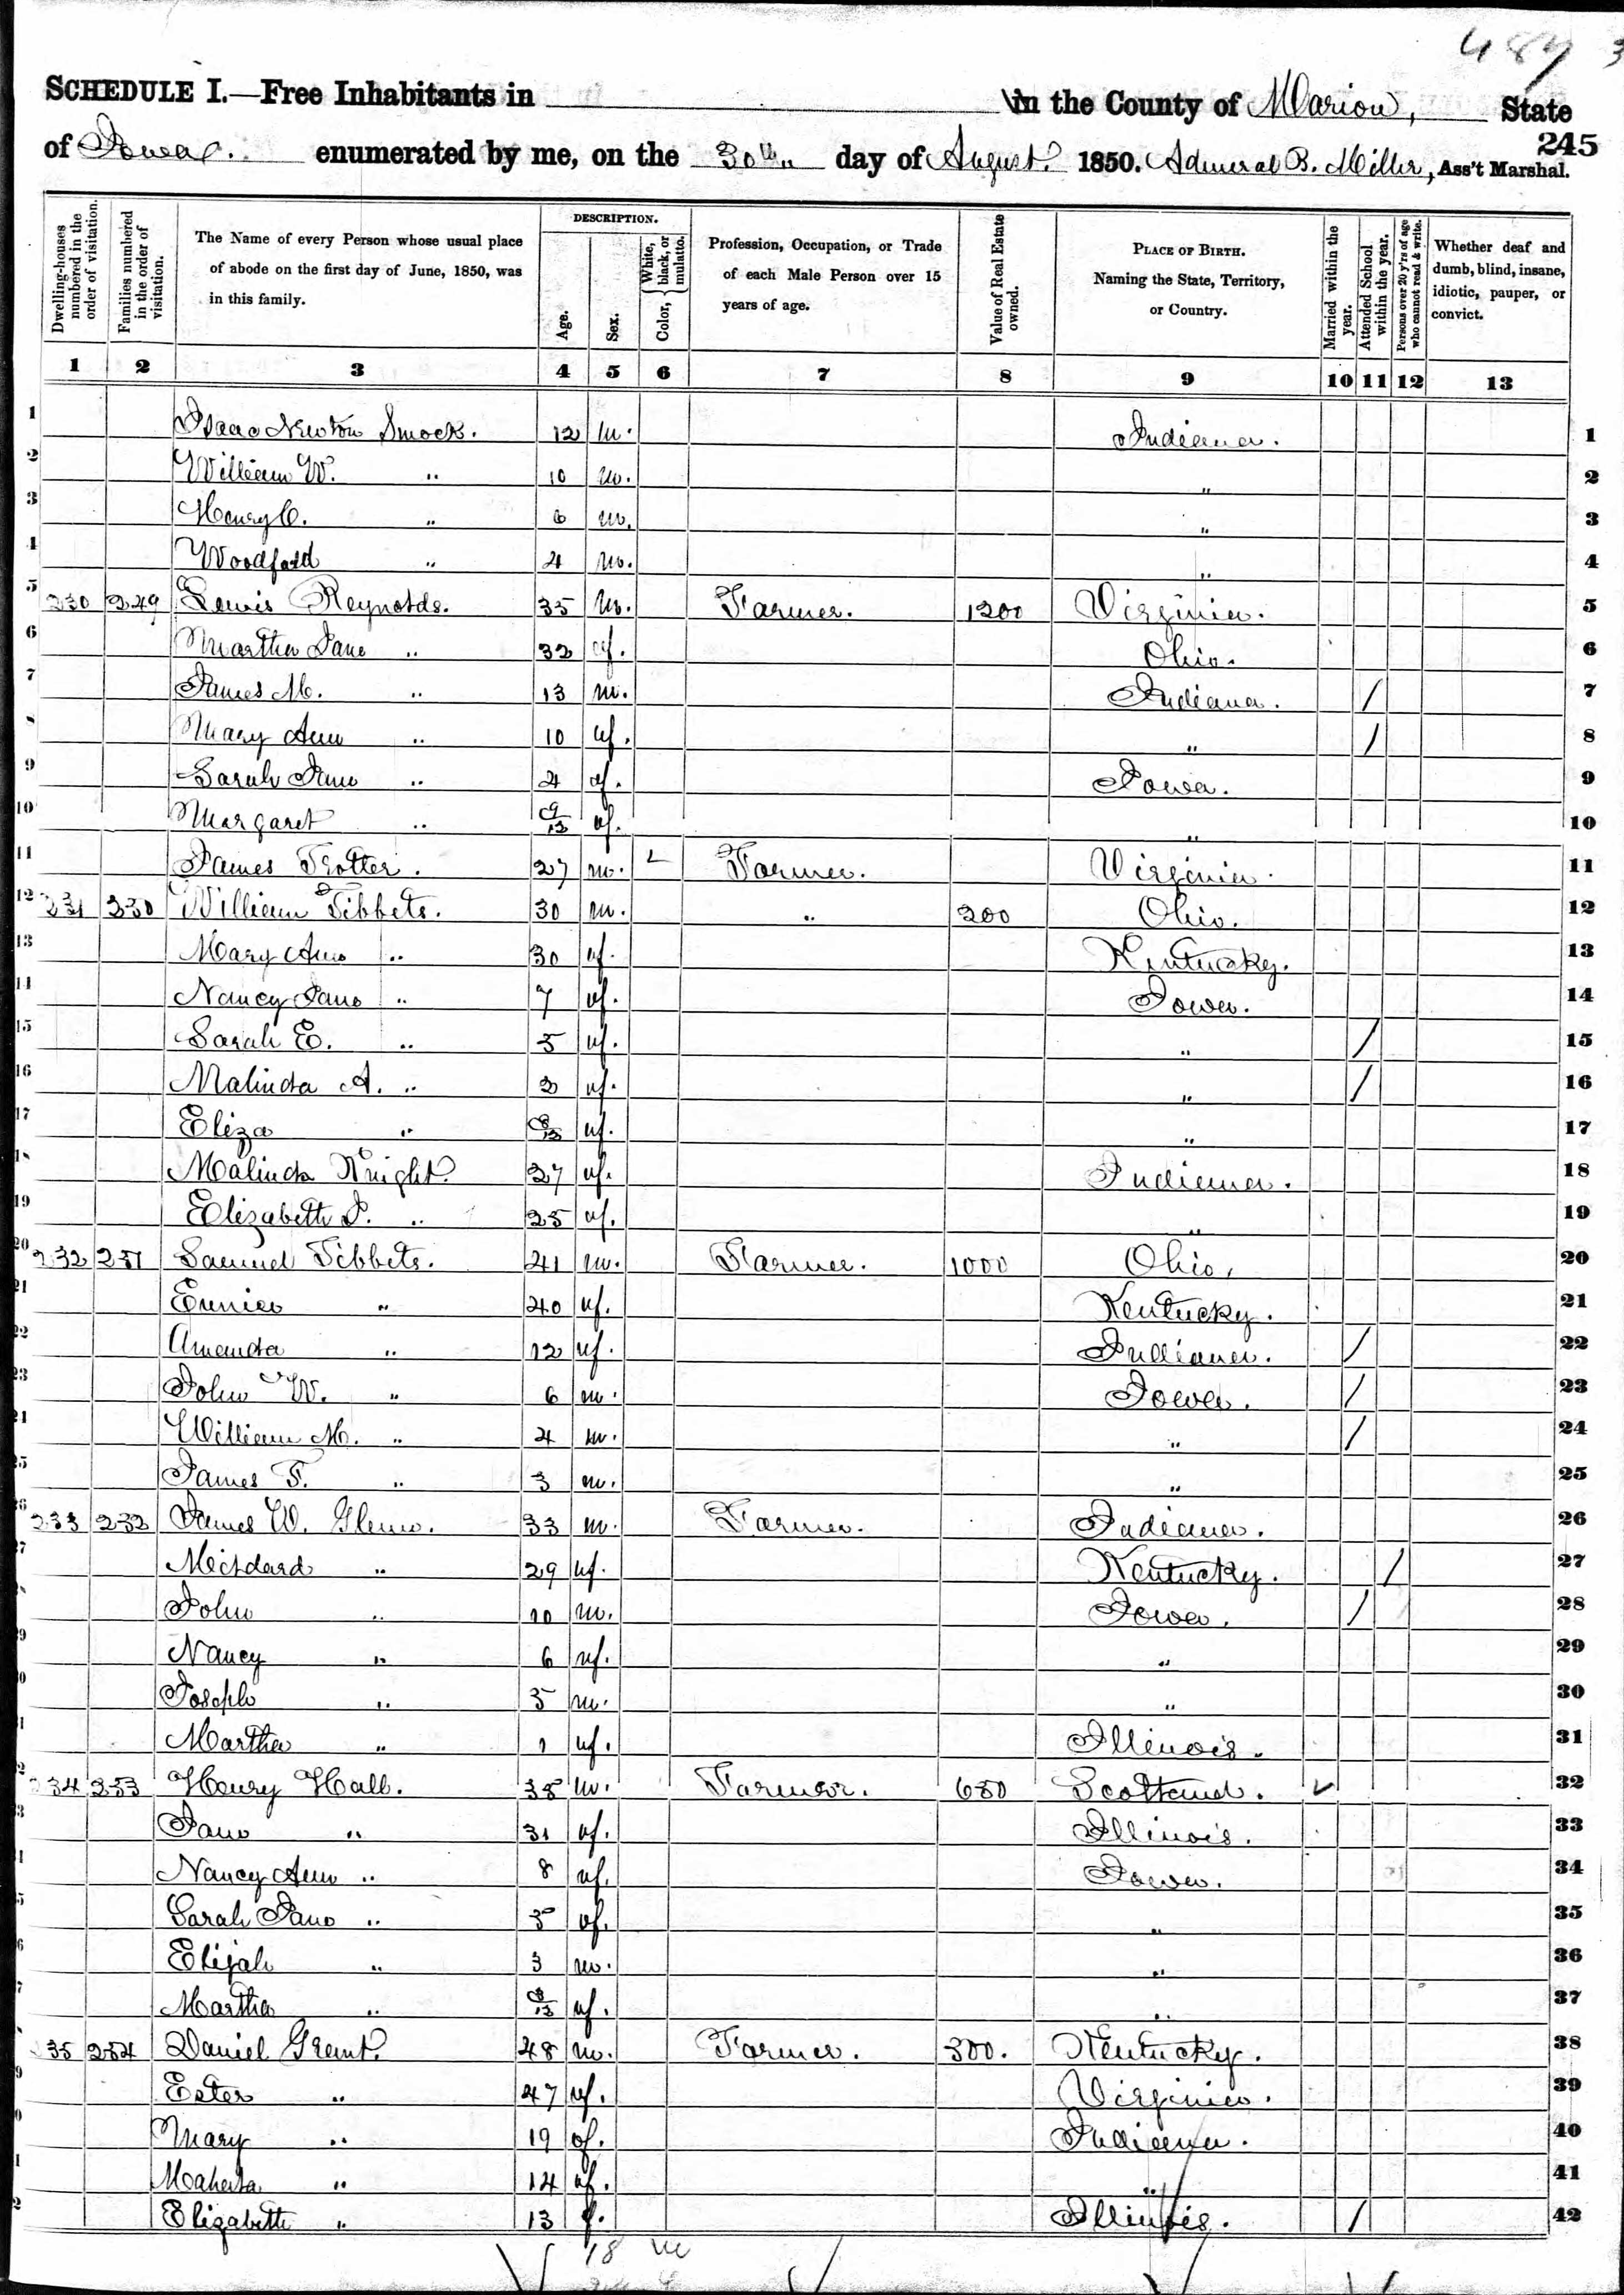 487 3
SCHEDULE I.—Free Inhabitants in in the County of Marion, State
245
of Iowa. enumerated by me, on the 30th day of August. 1850. Admiral B. Miller, Ass't Marshal.
Dwelling-houses numbered in the order of visitation.
Families numbered in the order of visitation.
The Name of every Person whose usual place of abode on the first day of June, 1850, was in this family.
DESCRIPTION.
Age.
Sex.
Color, { White, black, or mulatto.
Profession, Occupation, or Trade of each Male Person over 15 years of age.
Value of Real Estate owned.
PLACE OF BIRTH. Naming the State, Territory, or Country.
Married within the year.
Attended School within the year.
Persons over 20 y'rs of age who cannot read & write.
Whether deaf and dumb, blind, insane, idiotic, pauper, or convict.
1 2 3 4 5 6 7 8 9 10 11 12 13
1 Isaac Newton Smock. 12 m. Indiana. 1
2 William W. " 10 m. " 2
3 Henry C. " 6 m. " 3
4 Woodford " 4 m. " 4
5 230 229 Lewis Reynolds. 35 m. Farmer. 1200 Virginia. 5
6 Martha Jane " 32 f. Ohio. 6
7 James M. " 13 m. Indiana. / 7
8 Mary Ann " 10 f. " / 8
9 Sarah Jane " 4 f. Iowa. 9
10 Margaret " 9/12 f. " 10
11 James Trotter. 27 m. Farmer. Virginia. 11
12 231 230 William Tibbets. 30 m. " 200 Ohio. 12
13 Mary Ann " 30 f. Kentucky. 13
14 Nancy Jane " 7 f. Iowa. 14
15 Sarah E. " 5 f. " / 15
16 Malinda A. " 2 f. " / 16
17 Eliza " 8/12 f. " 17
18 Malinda Knight. 27 f. Indiana. 18
19 Elizabeth J. " 25 f. " 19
20 232 231 Samuel Tibbets. 41 m. Farmer. 1000 Ohio, 20
21 Eunice " 40 f. Kentucky. 21
22 Amanda " 12 f. Indiana. / 22
23 John W. " 6 m. Iowa. / 23
24 William M. " 4 m. " / 24
25 James F. " 3 m. " 25
26 233 232 James W. Glenn. 33 m. Farmer. Indiana. 26
27 " 29 f. Kentucky. / 27
28 John " 10 m. Iowa. / 28
29 Nancy " 6 f. " 29
30 Joseph " 5 m. " 30
31 Martha " 1 f. Illinois. 31
234 233 Henry Hall. 38 m. Farmer. Scotland. ✓ 32
Jane " 31 f. Illinois. 33
Nancy Ann " 8 f. Iowa. 34
Sarah Jane " 5 f. " 35
Elijah " 3 m. " 36
Martha " 8/12 f. " 37
35 234 Daniel Grant. 48 m. Farmer. 300. Kentucky. 38
Ester " 47 f. Virginia. 39
Mary " 19 f. Indiana. 40
" 14 f. " 41
Elizabeth " 13 f. Illinois. / 42
18 m